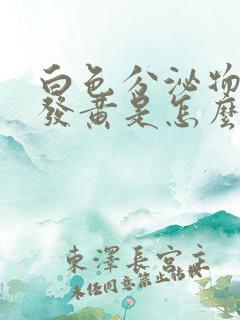 白色分泌物
發黃是怎麼
東澤長宮主
未任同意禁止括摸